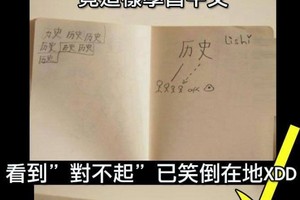 竟這樣學習中文
力史 历史 历史
历史 历史 历史
历史
历史
lìshǐ
看到”對不起”已笑倒在地XDD